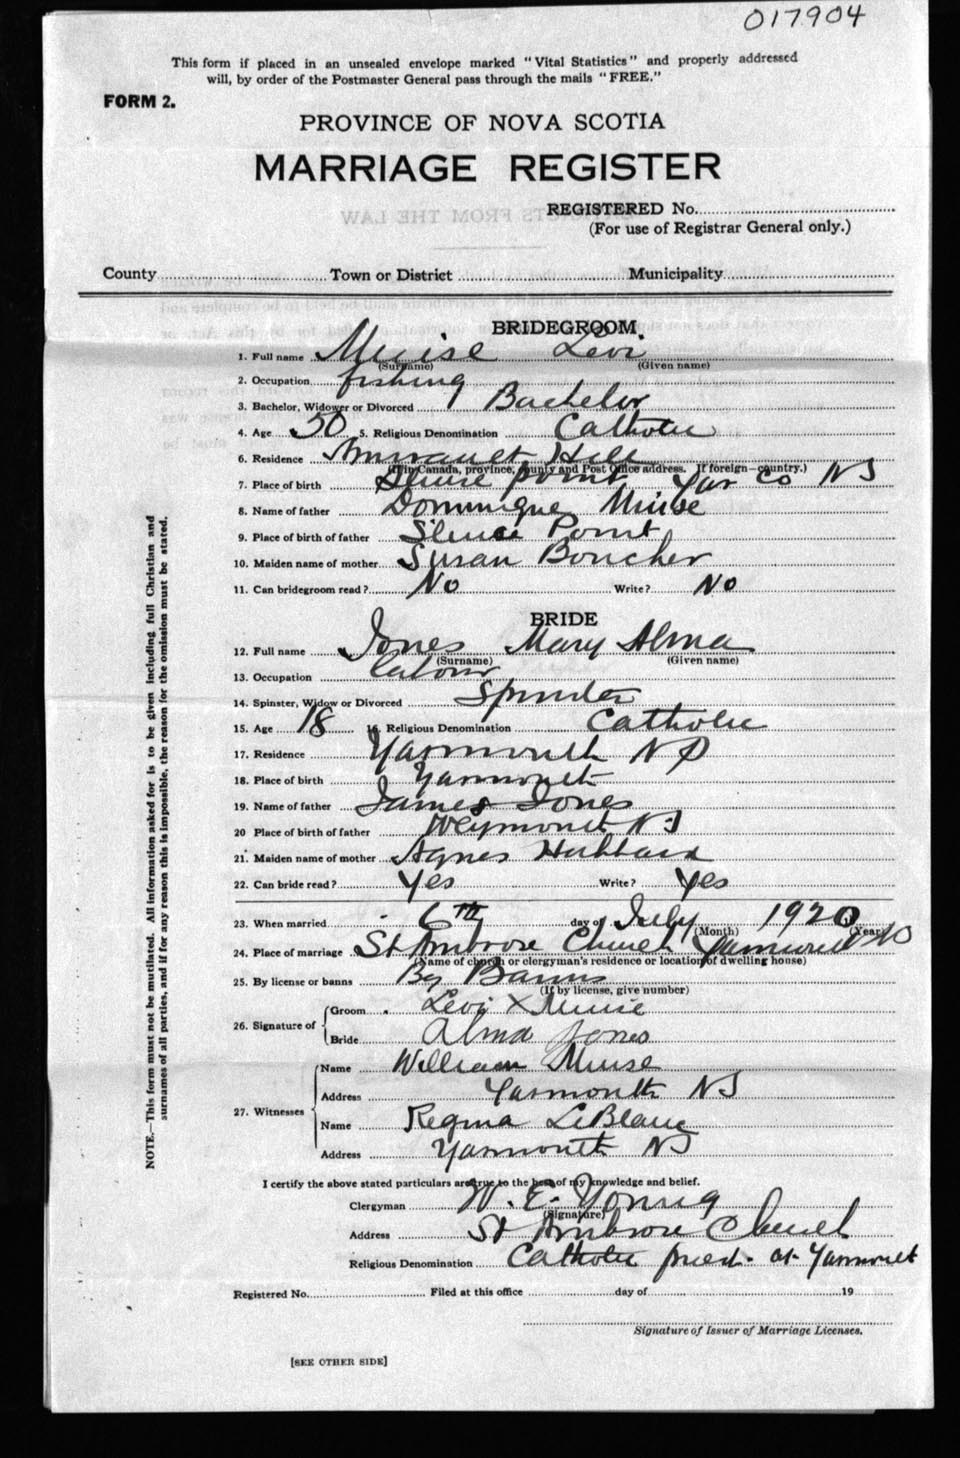 017904
This form if placed in an unsealed envelope marked "Vital Statistics" and properly addressed
will, by order of the Postmaster General pass through the mails "FREE."
FORM 2.
PROVINCE OF NOVA SCOTIA
MARRIAGE REGISTER
REGISTERED No.
(For use of Registrar General only.)
County Town or District Municipality
BRIDEGROOM
1. Full name Muise Levi
(Surname) (Given name)
2. Occupation fishing
3. Bachelor, Widower or Divorced Bachelor
4. Age 50 5. Religious Denomination Catholic
6. Residence Amirault Hill
(If in Canada, province, county and Post Office address. If foreign—country.)
7. Place of birth Sluice point Yar Co NS
8. Name of father Dominique Muise
9. Place of birth of father Sluice Point
10. Maiden name of mother Susan Boucher
11. Can bridegroom read? No Write? No
BRIDE
12. Full name Jones Mary Alma
(Surname) (Given name)
13. Occupation Labour
14. Spinster, Widow or Divorced Spinster
15. Age 18 16. Religious Denomination Catholic
17. Residence Yarmouth NS
18. Place of birth Yarmouth
19. Name of father James Jones
20 Place of birth of father Weymouth NS
21. Maiden name of mother Agnes Hubbard
22. Can bride read? Yes Write? Yes
23. When married 6th day of July 1920
(Month) (Year)
24. Place of marriage St Ambrose Church Yarmouth NS
(Name of church or clergyman's residence or location of dwelling house)
25. By license or banns By Banns
(If by license, give number)
26. Signature of Groom Levi X Muise
Bride Alma Jones
27. Witnesses Name William Muise
Address Yarmouth NS
Name Regina LeBlanc
Address Yarmouth NS
I certify the above stated particulars are true to the best of my knowledge and belief.
Clergyman W. E. Young
(Signature)
Address St Ambrose Church
Religious Denomination Catholic priest at Yarmouth
Registered No. Filed at this office day of 19
Signature of Issuer of Marriage Licenses.
[SEE OTHER SIDE]
NOTE.—This form must not be mutilated. All information asked for is to be given including full Christian and
surnames of all parties, and if for any reason this is impossible, the reason for the omission must be stated.